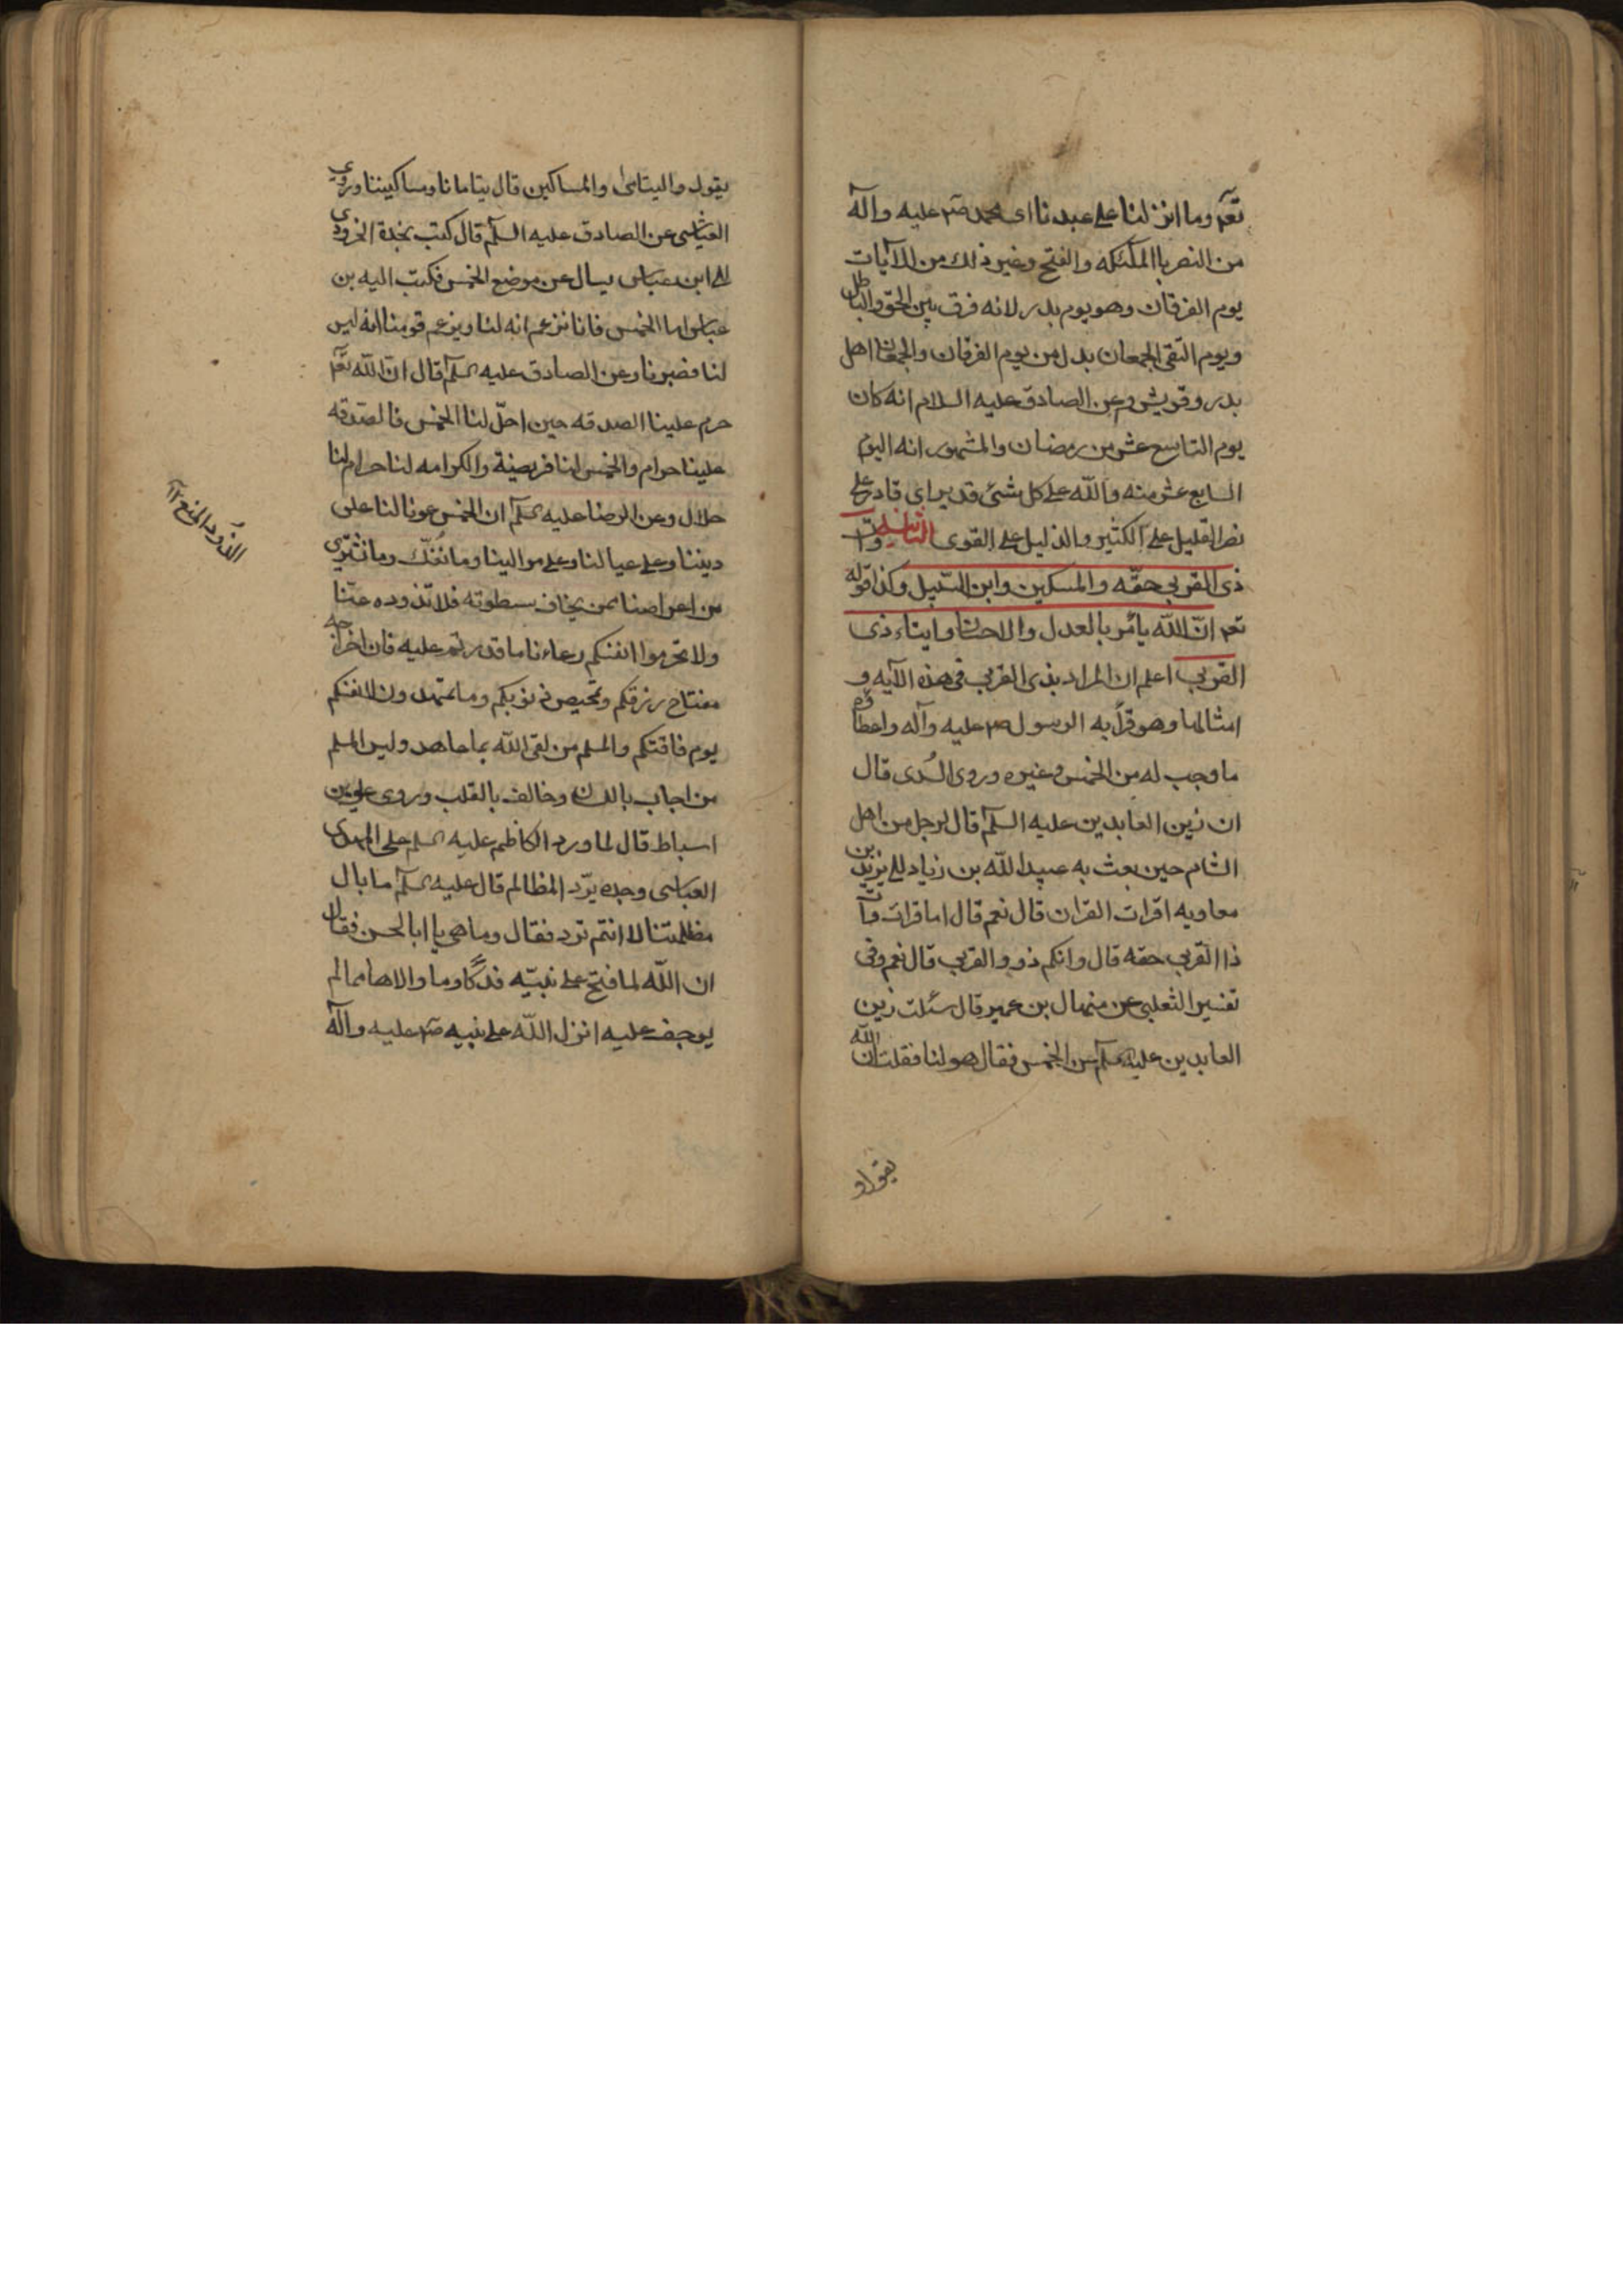 تعم وما انزلنا على عبدنا اى محمد صم عليه وآله
من النصر بالملئكه والفتح وغير ذلك من الآيات
يوم الفرقان وهو يوم بدر لانه فرق بين الحق والباطل
ويوم التقى الجمعان بدل من يوم الفرقان والجمعان اهل
بدر وقريش وعن الصادق عليه السلام انه كان
يوم التاسع عشر من رمضان والمشهور انه اليوم
السابع عشر منه والله على كل شئ قدير اى قادر على
نصر القليل على الكثير والذليل على القوى الثانيه وآت
ذى القربى حقّه والمسكين وابن السّبيل وكذا قوله
تعم انّ الله يأمر بالعدل والاحسان وايتاء ذى
القربى اعلم ان المراد بذى القربى فى هذه الآيه و
امثالها وهو قرابه الرسول صم عليه وآله واعطاؤه
ما وجب له من الخمس وغيره وروى السُدى قال
ان زين العابدين عليه السلم قال لرجل من اهل
الشام حين بعث به عبيد الله بن زياد الى يزيد بن
معاويه اقرات القران قال نعم قال اما قرات وآت
ذا القربى حقه قال وانكم ذوو القربى قال نعم وفى
تفسير الثعلبى عن منهال بن عمير قال سئلت زين
العابدين عليه سلم عن الخمس فقال هو لنا فقلت ان الله
يقول و
يقول واليتامى والمساكين قال يتامانا ومساكيننا وروى
العياشى عن الصادق عليه السلم قال كتب نجدة الحرورى
الى ابن عباس يسال عن موضع الخمس فكتب اليه بن
عباس اما الخمس فانا نزعم انه لنا ويزعم قومنا انه ليس
لنا فصبرنا وعن الصادق عليه سلم قال انّ الله تعم
حرم علينا الصدقه حين احلّ لنا الخمس فالصّدقه
علينا حرام والخمس لنا فريضة والكرامه لنا حرام لنا
حلال وعن الرضا عليه سلم ان الخمس عوننا لنا على
ديننا وعلى عيالنا وعلى موالينا وما نفكّ وما نشترى
من اعراضنا ممن يخاف سطوته فلا تذودوه عنّا
ولا تحرموا انفسكم دعاءنا ما قدرتم عليه فان اخراجه
مفتاح رزقكم وتمحيص ذنوبكم وما تمهدون لانفسكم
يوم فاقتكم والمسلم من لقى الله بما عاهد وليس المسلم
من اجاب باللسان وخالف بالقلب وروى على بن
اسباط قال لما ورد الكاظم عليه سلم على المهدى
العباسى وجده يرّد المظالم قال عليه سلم ما بال
مظلمتنا لا انتم ترد فقال وما هى يا ابا الحسن فقال
ان الله لما فتح على نبيّه فدكًا وما والاها مما لم
يوجف عليه انزل الله على نبيه صم عليه وآله
الذود المنع